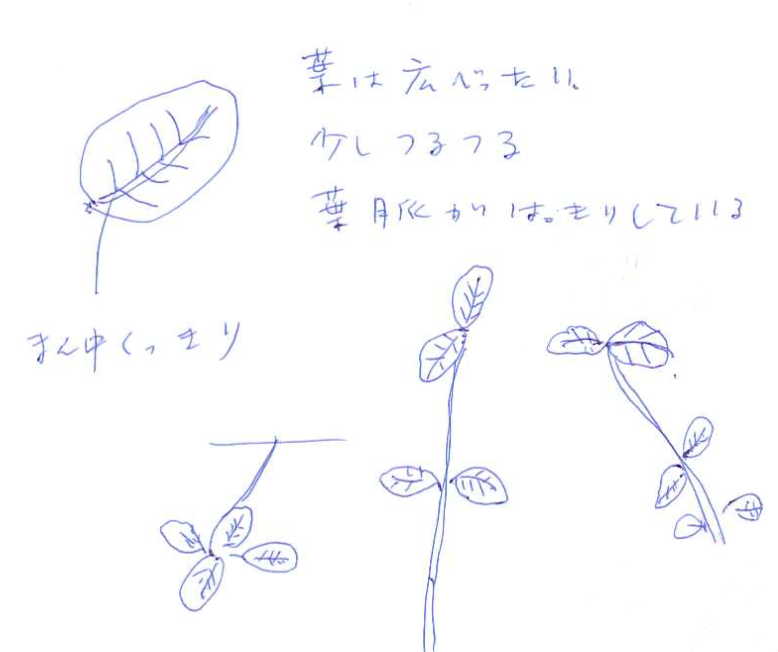 葉は広べったい。
少しつるつる
葉脈がはっきりしている
まん中くっきり